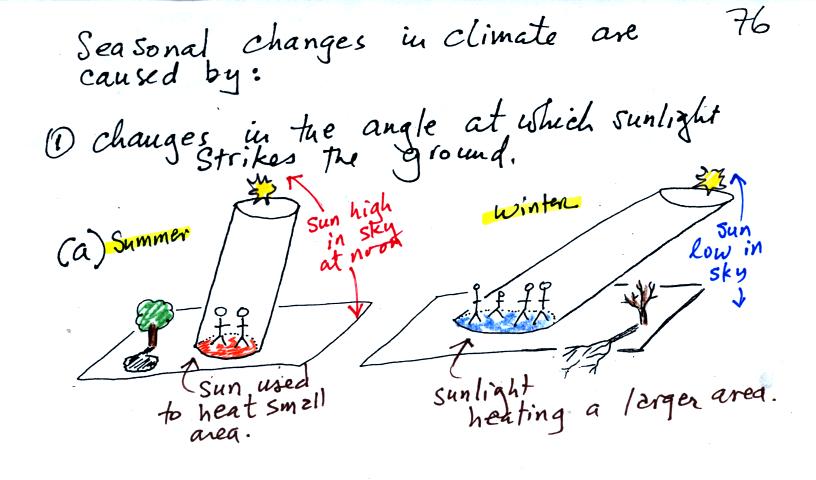 76
Seasonal changes in climate are
caused by:
① changes in the angle at which sunlight
strikes the ground.
(a) Summer
sun high
in sky
at noon
Winter
sun
low in
sky
sun used
to heat small
area.
sunlight
heating a larger area.